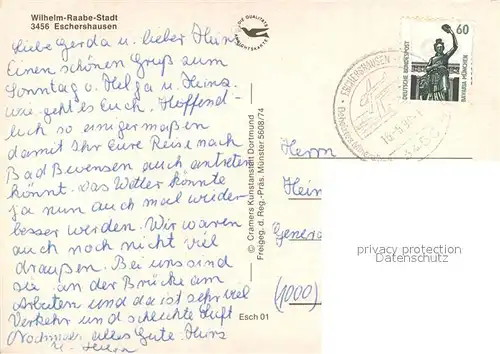 Wilhelm-Raabe-Stadt
3456 Eschershausen
DIE QUALITÄTS
Liebe Gerda u. lieber Heinz
Einen schönen Gruß zum
Sonntag v. Helga u. Heinz.
wie geht es Euch. Hoffend-
lich so einigermaßen
damit Ihr Eure Reise nach
Bad Bevensen auch antreten
könnt. Das Wetter könnte
ja nun auch mal wieder
besser werden. Wir waren
auch noch nicht viel
draußen. Bei uns sind
sie an der Brücke am
Arbeiten und da ist sehr viel
Verkehr und schlechte Luft
Nochmals alles Gute
© Cramers Kunstanstalt Dortmund
Freigeg. d. Reg.-Präs. Münster 5608/74
Esch 01
ESCHERSHAUSEN
60
DEUTSCHE BUNDESPOST
BAVARIA MÜNCHEN
Herrn
(1000)
privacy protection
oldthing.com